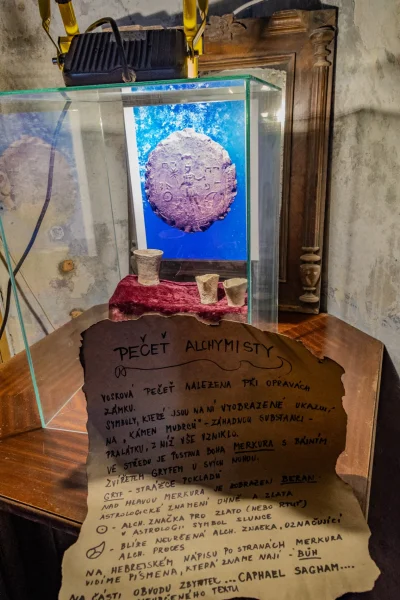 PEČEŤ ALCHYMISTY
VZÁCNÁ PEČEŤ NALEZENA PŘI OPRAVÁCH
ZÁMKU.
SYMBOLY, KTERÉ JSOU NA NÍ VYOBRAZENÉ UKAZUJÍ
NA „KÁMEN MUDRCŮ" - ZÁHADNOU SUBSTANCI -
PRALÁTKU, Z NÍŽ VŠE VZNIKLO.
VE STŘEDU JE POSTAVA BOHA MERKURA S BÁJNÝM
ZVÍŘETEM GRYFEM U SVÝCH NOHOU.
GRYF - STRÁŽCE POKLADŮ
NAD HLAVOU MERKURA JE ZOBRAZEN BERAN -
ASTROLOGICKÉ ZNAMENÍ OHNĚ A ZLATA
- ALCH. ZNAČKA PRO ZLATO (NEBO RTUŤ)
V ASTROLOGII SYMBOL SLUNCE
- BLÍŽE NEURČENÁ ALCH. ZNAČKA, OZNAČUJÍCÍ
ALCH. PROCES
NA HEBREJSKÉM NÁPISU PO STRANÁCH MERKURA
VIDÍME PÍSMENA, KTERÁ ZNAMENAJÍ - BŮH.
NA ČÁSTI OBVODU ZBYTEK ... CAPHAEL SAGHAM....
TEXTU